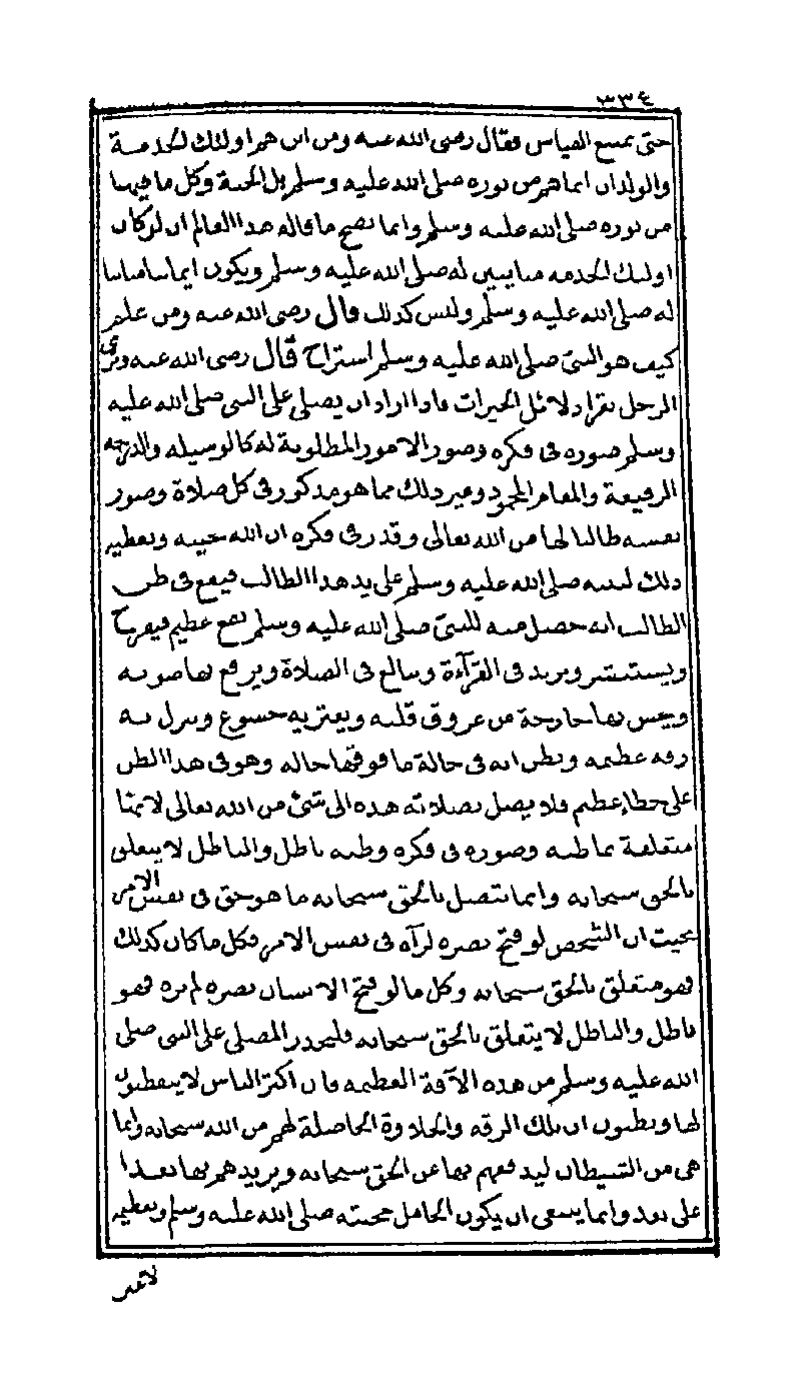 ٣٣٤
حتى يمنع القياس فقال رضى الله عنه ومن اين هم اولئك الخدمة
والولدان انما هم من نوره صلى الله عليه وسلم بل الجنة وكل ما فيها
من نوره صلى الله عليه وسلم وانما يصح ما قاله هذا العالم ان لو كان
اولئك الخدمه مباينين له صلى الله عليه وسلم ويكون ايماننا مباينا
له صلى الله عليه وسلم وليس كذلك قال رضى الله عنه ومن علم
كيف هو النبي صلى الله عليه وسلم استراح قال رضى الله عنه وترى
الرجل يقرأ دلائل الخيرات فاذا اراد ان يصلى على النبي صلى الله عليه
وسلم صوره فى فكره وصور الامور المطلوبة له كالوسيله والدرجه
الرفيعة والمقام المحمود وغير ذلك مما هو مذكور فى كل صلاة وصور
نفسه طالبا لها من الله تعالى وقدر فى فكره ان الله يجيبه ويعطيه
ذلك لنبيه صلى الله عليه وسلم على يد هذا الطالب فيقع فى ظن
الطالب انه حصل منه للنبي صلى الله عليه وسلم نفع عظيم فيفرح
ويستبشر ويزيد فى القرآءة ويبالغ فى الصلاة ويرفع بها صوته
ويحس بها خارجة من عروق قلبه ويعتريه خشوع وتنزل به
رقه عظيمه ويظن انه فى حالة ما فوقها حاله وهو فى هذا الظن
على خطإ عظيم فلا يصل بصلاته هذه الى شئ من الله تعالى لانها
متعلقة بما ظنه وصوره فى فكره وظنه باطل والباطل لا يتعلق
بالحق سبحانه وانما يتصل بالحق سبحانه ما هو حق فى نفس الامر
بحيث ان الشخص لو فتح بصره لرآه فى نفس الامر فكل ما كان كذلك
فهو متعلق بالحق سبحانه وكل ما لو فتح الانسان بصره لم يره فهو
باطل والباطل لا يتعلق بالحق سبحانه فليحذر المصلى على النبي صلى
الله عليه وسلم من هذه الآفة العظيمه فان اكثر الناس لا يتفطنون
لها ويظنون ان تلك الرقه والحلاوة الحاصلة لهم من الله سبحانه وانما
هى من الشيطان ليدفعهم بها عن الحق سبحانه ويزيدهم بها بعدا
على بعد وانما ينبغى ان يكون الحامل محبته صلى الله عليه وسلم وتعظيمه
لا غير